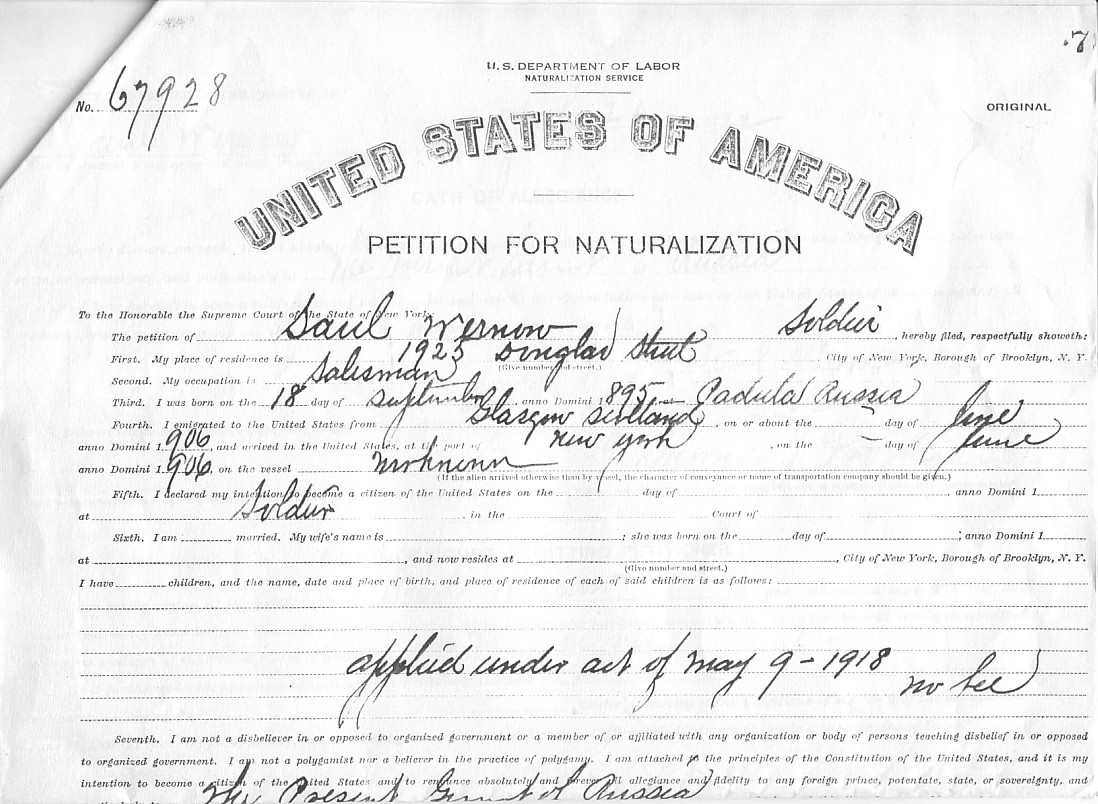 7
U.S. DEPARTMENT OF LABOR
NATURALIZATION SERVICE
No. 67928
ORIGINAL
UNITED STATES OF AMERICA
PETITION FOR NATURALIZATION
To the Honorable the Supreme Court of the State of New York:
The petition of Saul Wernow Soldier, hereby filed, respectfully showeth:
First. My place of residence is 1925 Douglas Street City of New York, Borough of Brooklyn, N. Y.
(Give number and street.)
Second. My occupation is Salesman
Third. I was born on the 18 day of September, anno Domini 1895 at Padula Russia
Fourth. I emigrated to the United States from Glasgow Scotland, on or about the — day of June
anno Domini 1906, and arrived in the United States, at the port of New York, on the — day of June
anno Domini 1906, on the vessel
(If the alien arrived otherwise than by vessel, the character of conveyance or name of transportation company should be given.)
Fifth. I declared my intention to become a citizen of the United States on the day of, anno Domini 1
at Soldier, in the Court of
Sixth. I am married. My wife's name is; she was born on the day of; anno Domini 1
at, and now resides at, City of New York, Borough of Brooklyn, N. Y.
(Give number and street.)
I have children, and the name, date and place of birth, and place of residence of each of said children is as follows:
applied under act of May 9 - 1918
no fee
Seventh. I am not a disbeliever in or opposed to organized government or a member of or affiliated with any organization or body of persons teaching disbelief in or opposed
to organized government. I am not a polygamist nor a believer in the practice of polygamy. I am attached to the principles of the Constitution of the United States, and it is my
intention to become a citizen of the United States and to renounce absolutely and forever all allegiance and fidelity to any foreign prince, potentate, state, or sovereignty, and
The Present Govment of Russia